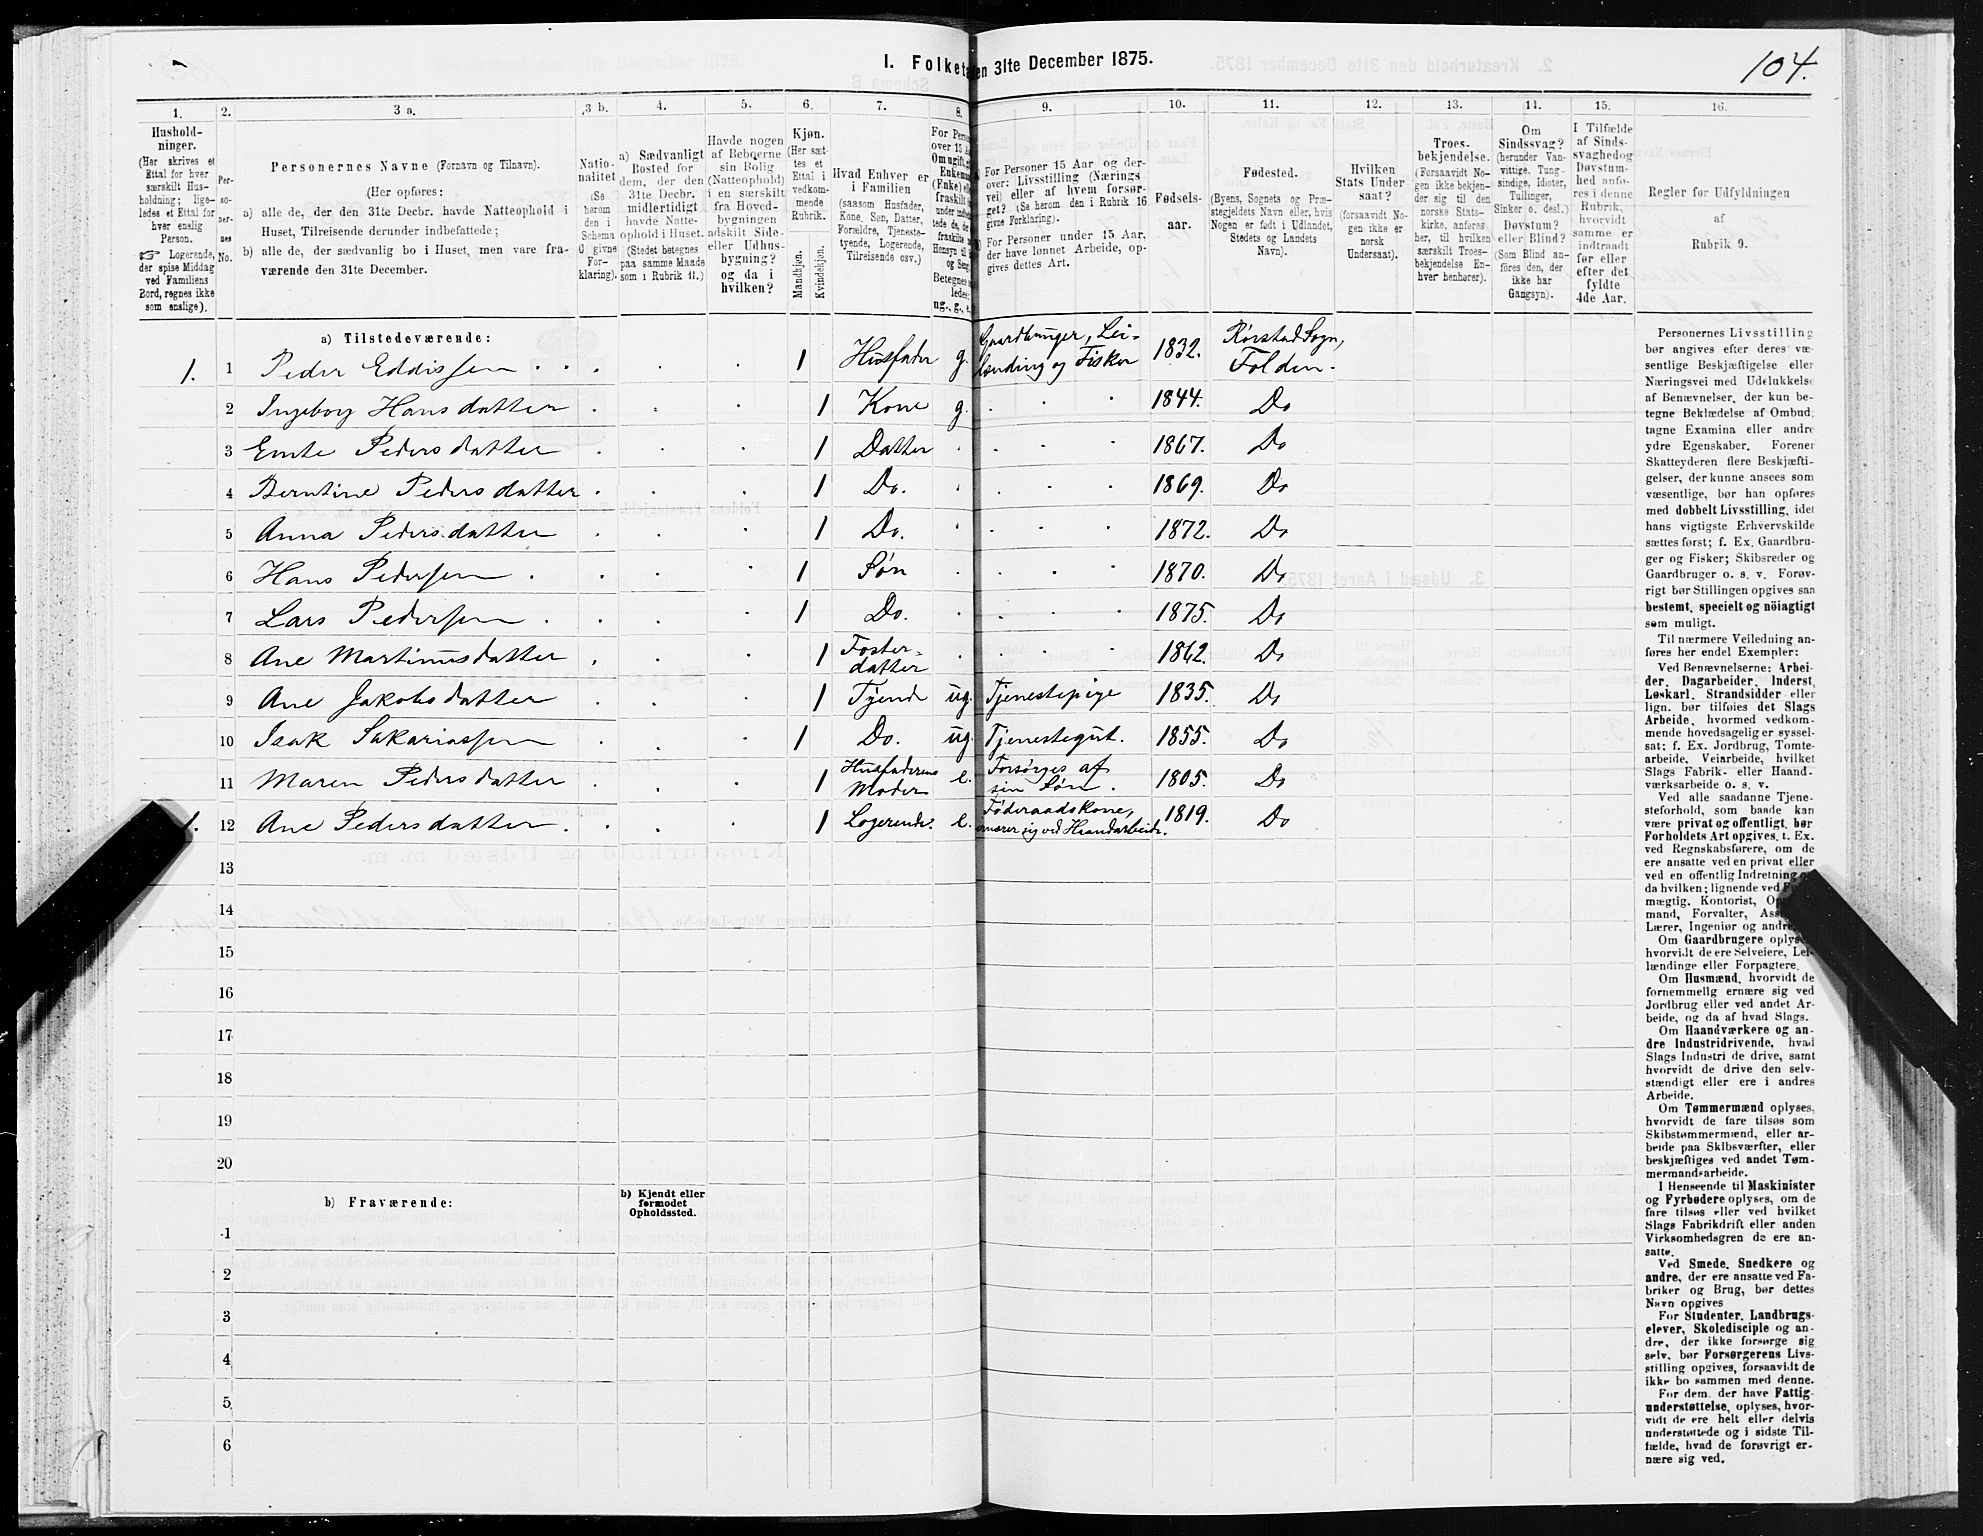 1. Folketa en 31te December 1875.
104.
1. 2. 3 a. 3 b. 4. 5. 6. 7. 8. 9. 10. 11. 12. 13. 14. 15. 16.
Hushold-
ninger.
(Her skrives et
Ettal for hver
særskilt Hus-
holdning; lige-
ledes et Ettal for
hver enslig
Person.
☞ Logerende,
der spise Middag
ved Familiens
Bord, regnes ikke
som enslige).
Per-
so-
ner-
nes
No.
Personernes Navne (Fornavn og Tilnavn).
(Her opføres:
a) alle de, der den 31te Decbr. havde Natteophold i
Huset, Tilreisende derunder indbefattede;
b) alle de, der sædvanlig bo i Huset, men vare fra-
værende den 31te December.
Natio-
nalitet
(Se
herom
den i
Schema
O givne
For-
klaring).
a) Sædvanligt
Bosted for
dem, der den
31te Decbr.
midlertidigt
havde Natte-
ophold i Huset.
(Stedet betegnes
paa samme Maade
som i Rubrik 11.)
Havde nogen
af Beboerne
sin Bolig
(Natteophold)
i en særskilt
fra Hoved-
bygningen
adskilt Side-
eller Udhus-
bygning?
og da i
hvilken?
Kjøn.
(Her sæt-
tes et
Ettal i
vedkom-
mende
Rubrik.
Mandkjøn.
Kvindekjøn.
Hvad Enhver er
i Familien
(saasom Husfader,
Kone, Søn, Datter,
Forældre, Tjeneste-
tyende, Logerende,
Tilreisende osv.)
For Pers
over 15 A
Om ugift, g
Enkem
(Enke) e
fraskilt
under
tede de, de
fraskilte
Hensyn til
og Seng
Betegnes
ledes;
ug., g., e.
a) For Personer 15 Aar og der-
over: Livsstilling (Nærings-
vei) eller af hvem forsør-
get? (Se herom den i Rubrik 16
givne Forklaring).
b) For Personer under 15 Aar,
der have lønnet Arbeide, op-
gives dettes Art.
Fødsels-
aar.
Fødested.
(Byens, Sognets og Præ-
stegjeldets Navn eller, hvis
Nogen er født i Udlandet,
Stedets og Landets
Navn).
Hvilken
Stats Under
saat?
(forsaavidt No-
gen ikke er
norsk
Undersaat).
Troes-
bekjendelse.
(Forsaavidt No-
gen ikke bekjen-
der sig til den
norske Stats-
kirke, anføres
her, til hvilken
særskilt Troes-
bekjendelse En-
hver henhører).
Om
Sindssvag?
(herunder Van-
vittige, Tung-
sindige, Idioter,
Tullinger,
Sinker o. desl.)
Døvstum?
eller Blind?
(Som Blind an-
føres den, der
ikke har
Gangsyn).
I Tilfælde
af Sinds-
svaghedog
Døvstum-
hed anfø-
res i denne
Rubrik,
hvorvidt
samme er
indtraadt
før eller
efter det
fyldte
4de Aar.
Regler for Udfyldningen
af
Rubrik 9.
a) Tilstedeværende:
1. 1 Peder Eddissen 1 Husfader g. Gaardbruger, Lei-
lænding og Fisker 1832. Rørstad Sogn,
Folden.
2 Ingeborg Hansdatter 1 Kone g. 1844. Do
3 Emte Pedersdatter 1 Datter 1867. Do
4 Berntine Pedersdatter 1 Do. 1869. Do
5 Anna Pedersdatter 1 Do. 1872. Do
6 Hans Pedersen 1 Søn 1870. Do
7 Lars Pedersen 1 Do. 1875. Do
8 Ane Martinusdatter 1 Foster-
datter 1862. Do
9 Ane Jakobsdatter 1 Tyende ug. Tjenestepige 1835. Do
10 Isak Sakariassen 1 Do. ug. Tjenestegut. 1855. Do
11 Maren Pedersdatter 1 Husfaderens
Moder e. Forsørges af
sin Søn. 1805. Do
1. 12 Ane Pedersdatter 1 Logerende. e. Føderaadskone,
ernærer sig ved Haandarbeide. 1819. Do
13
14
15
16
17
18
19
20
b) Fraværende:
b) Kjendt eller
formodet
Opholdssted.
1
2
3
4
5
6
Personernes Livsstilling
bør angives efter deres væ-
sentlige Beskjæftigelse eller
Næringsvei med Udelukkelse
af Benævnelser, der kun be-
tegne Beklædelse af Ombud,
tagne Examina eller andre
ydre Egenskaber. Forener
Skatteyderen flere Beskjæfti-
gelser, der kunne ansees som
væsentlige, bør han opføres
med dobbelt Livsstilling, idet
hans vigtigste Erhvervskilde
sættes først; f. Ex. Gaardbru-
ger og Fisker; Skibsreder og
Gaardbruger o. s. v. Forøv-
rigt bør Stillingen opgives saa
bestemt, specielt og nöiagtigt
som muligt.
Til nærmere Veiledning an-
føres her endel Exempler:
Ved Benævnelserne: Arbei-
der, Dagarbeider, Inderst,
Løskarl, Strandsidder eller
lign. bør tilføies det Slags
Arbeide, hvormed vedkom-
mende hovedsagelig er syssel-
sat; f. Ex. Jordbrug, Tomte-
arbeide, Veiarbeide, hvilket
Slags Fabrik- eller Haand-
værksarbeide o. s. v.
Ved alle saadanne Tjene-
steforhold, som baade kan
være privat og offentligt, bør
Forholdets Art opgives, t. Ex.
ved Regnskabsførere, om de
ere ansatte ved en privat eller
ved en offentlig Indretning
da hvilken; lignende ved
mægtig, Kontorist, Op
mand, Forvalter, Ass
Lærer, Ingeniør og andre
Om Gaardbrugere oplyse
hvorvidt de ere Selveiere, Lei-
lændinge eller Forpagtere.
Om Husmænd, hvorvidt de
fornemmelig ernære sig ved
Jordbrug eller ved andet Ar-
beide, og da af hvad Slags.
Om Haandværkere og an-
dre Industridrivende, hvad
Slags Industri de drive, samt
hvorvidt de drive den selv-
stændigt eller ere i andres
Arbeide.
Om Tømmermænd oplyses,
hvorvidt de fare tilsøs som
Skibstømmermænd, eller ar-
beide paa Skibsværfter, eller
beskjæftiges ved andet Tøm-
mermandsarbeide.
I Henseende til Maskinister
og Fyrbødere oplyses, om de
fare tilsøs eller ved hvilket
Slags Fabrikdrift eller anden
Virksomhedsgren de ere an-
satte.
Ved Smede, Snedkere og
andre, der ere ansatte ved Fa-
briker og Brug, bør dettes
Navn opgives
For Studenter, Landbrugs-
elever, Skoledisciple og an-
dre, der ikke forsørge sig
selv, bør Forsørgerens Livs-
stilling opgives, forsaavidt de
ikke bo sammen med denne.
For dem, der have Fattig-
understøttelse, oplyses, hvor-
vidt de ere helt eller delvis
understøttede og i sidste Til-
fælde, hvad de forøvrigt er-
nære sig ved.